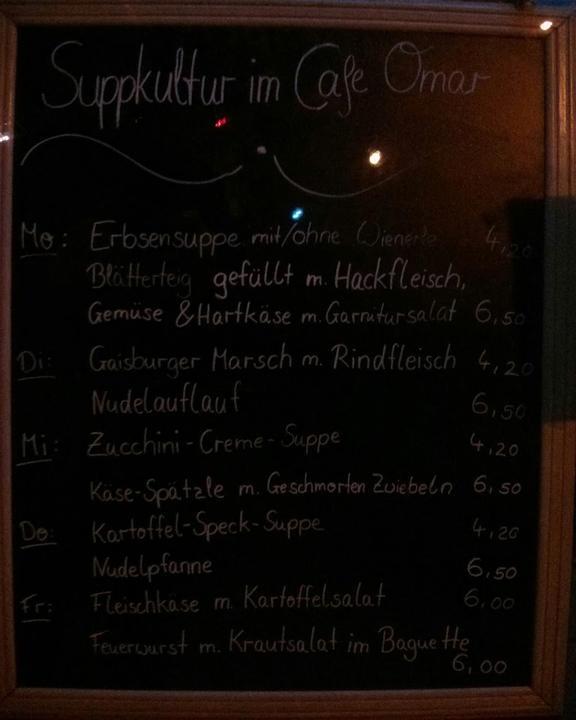 Suppkultur im Cafe Omar
Mo: Erbsensuppe mit/ohne Wienerle 4,20
Blätterteig gefüllt m. Hackfleisch,
Gemüse & Hartkäse m. Garnitursalat 6,50
Di: Gaisburger Marsch m. Rindfleisch 4,20
Nudelauflauf 6,50
Mi: Zucchini-Creme-Suppe 4,20
Käse-Spätzle m. Geschmorten Zwiebeln 6,50
Do: Kartoffel-Speck-Suppe 4,20
Nudelpfanne 6,50
Fr: Fleischkäse m. Kartoffelsalat 6,00
Feuerwurst m. Krautsalat im Baguette
6,00